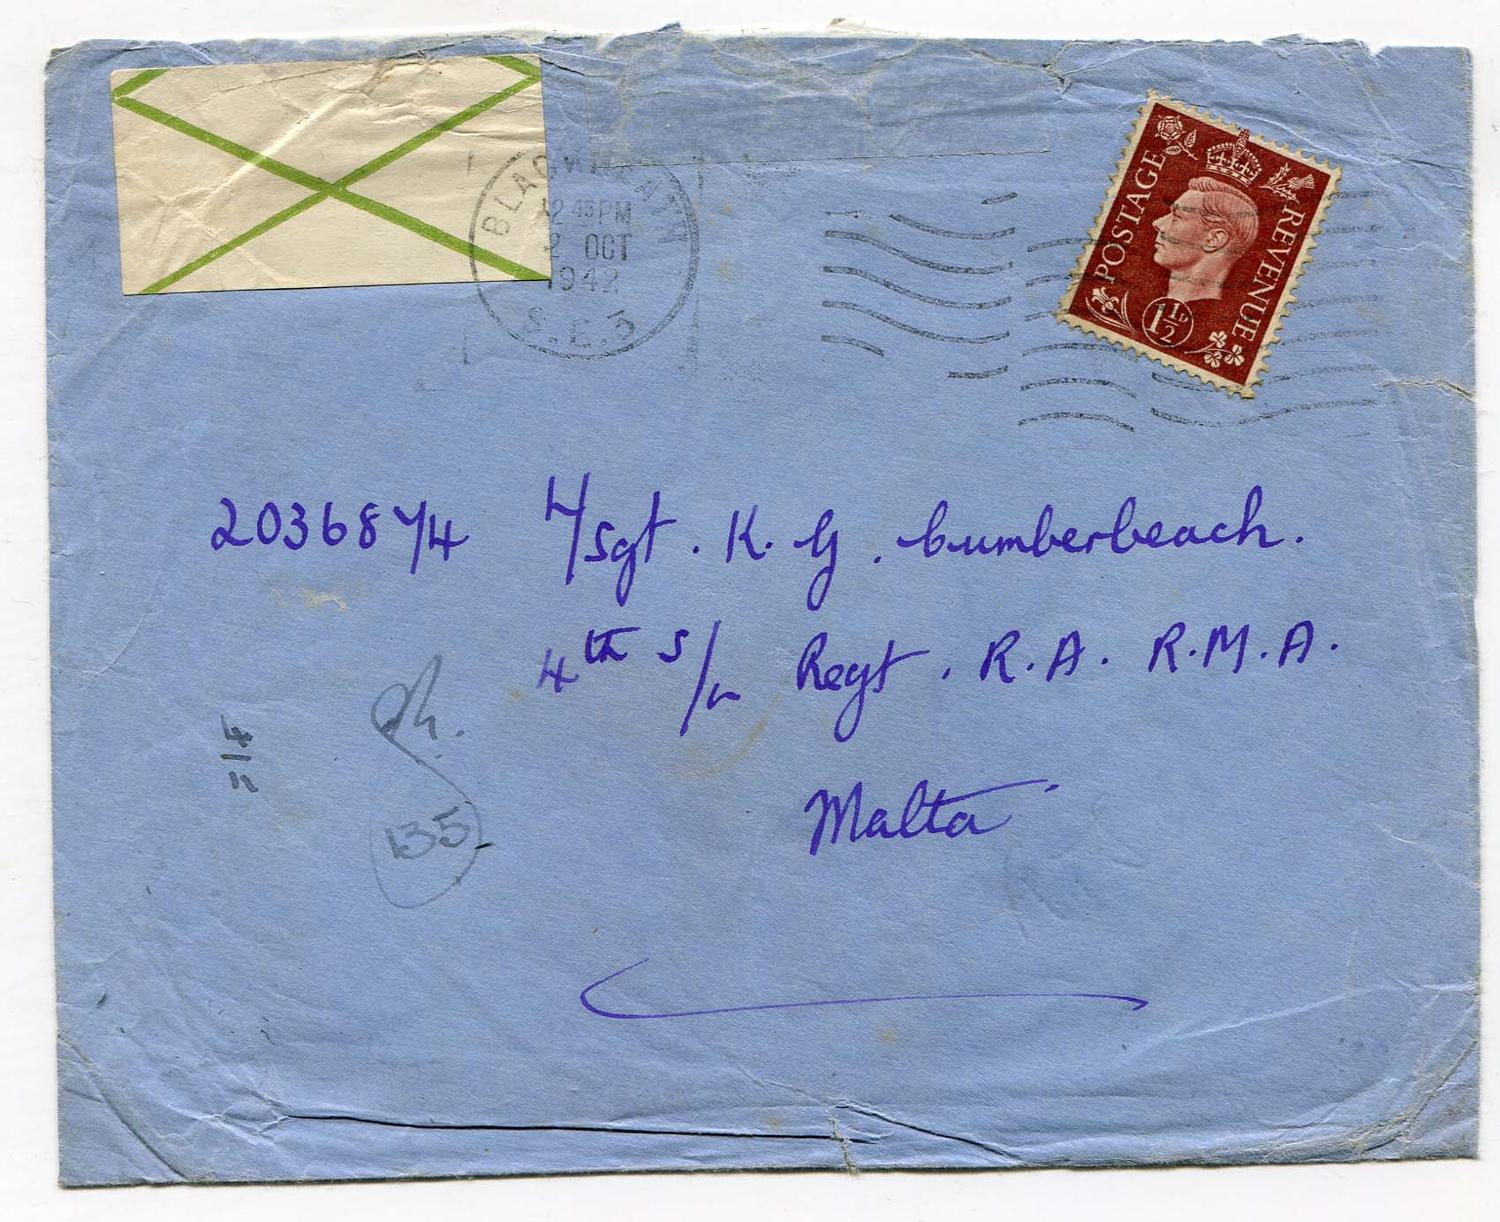 BLACKHEATH
12 45 PM
2 OCT
1942
S.E.3
POSTAGE REVENUE
1½D
2036874 L/Sgt. K. G. Cumberbeach.
4th S/L Regt. R.A. R.M.A.
Malta
135